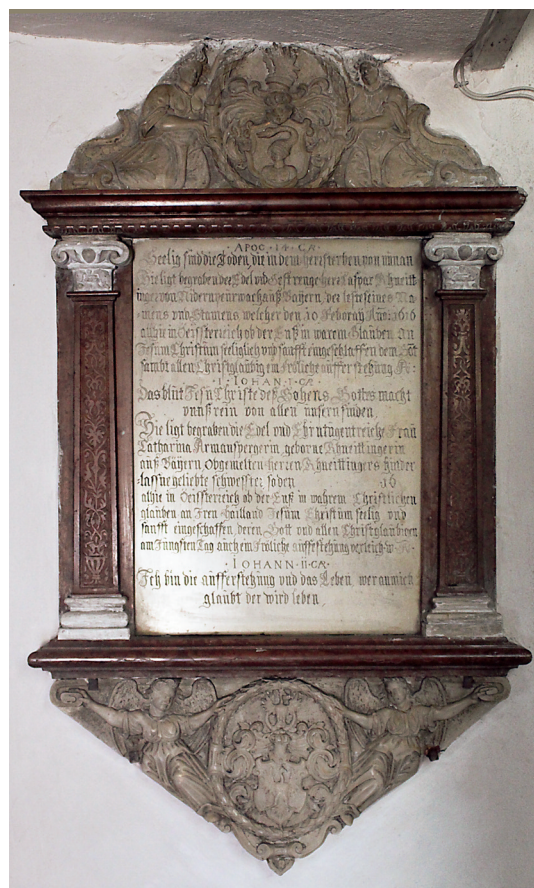 APOC · 14 · CA ·
Seelig sind die Toden, die in dem herrn sterben von nunan
Hie ligt begraben der Edel vnd Gestrenge herr Caspar Khneitt
inger von Nidernpeurwach auß Bayern, der leste seines Na-
mens vnd Stamens welcher den 20 Feborary Ano: 1616
alhie in Oeissterreich ob der Enß in warem Glauben an
Jesum Christum seeliglich vnd sanfft eingeschlaffen dem Gott
sambt allen Christglaubig em Fröliche aufferstehung
· I · IOHAN · I · CA
Das blüt Jesu Christe deß Sohens Gottes macht
vnnß rein von allen unsern sinden
Hie ligt begraben die Edel vnd Ehrntugentreiche Frau
Catharina Armanspergerin geborne Khneittingerin
auß Bayern Obgemelten herren Khneittingers hinder
lassne geliebte schwester so den 16
alhie in Oeissterreich ob der Enß in wahrem Christlichen
glauben an Iren Hailland Jesum Christum seelig vnd
sanfft eingeschaffen, deren Gott vnd allen Christglaubigen
am Jungsten Tag auch em Fröliche aufferstehung verleich
IOHANN · II · CA
Ich bin die aufferstehung vnd das Leben, wer an mich
glaubt der wird leben,